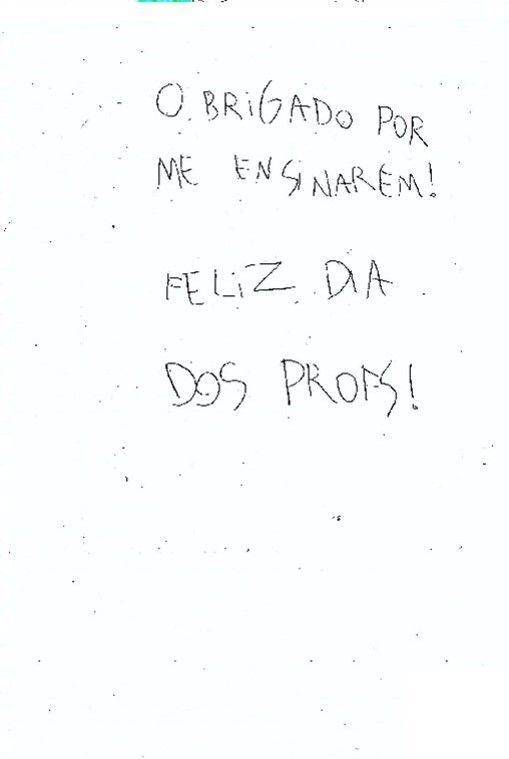 OBRiGADO POR
ME ENSINAREM!
FELiZ DIA
DOS PROFS!